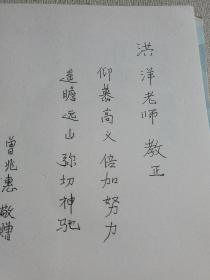 洪洋老师 教正
仰慕高义倍加努力
遥瞻远山弥切神驰
曾兆惠 敬赠